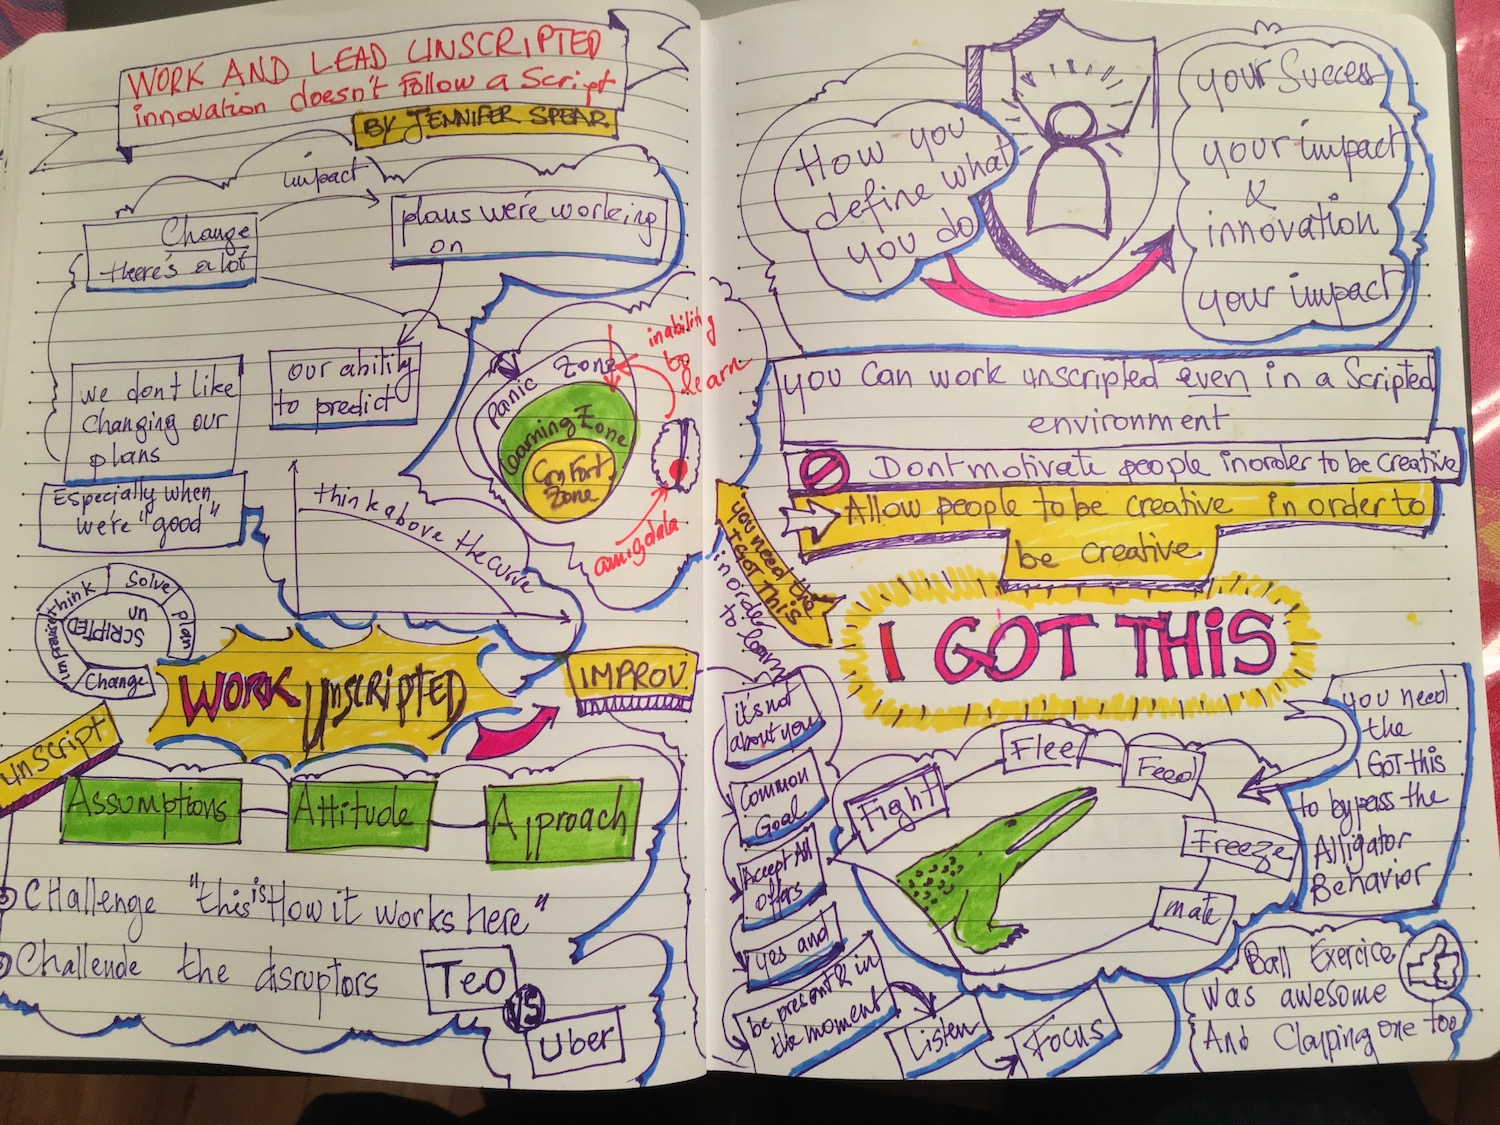 WORK AND LEAD UNSCRIPTED
innovation doesn't follow a Script
BY JENNIFER SPEAR
impact
Change
there's a lot
plans we're working
on
our ability
to predict
we don't like
changing our
plans
Especially when
we're "good"
Panic Zone
Learning Zone
Comfort
Zone
inability
to
learn
amigdala
think above the curve
think
Solve
plan
Change
improvise
UN
SCRIPTED
WORK UNSCRIPTED
IMPROV
unscript
Assumptions
Attitude
Approach
CHallenge "this is How it works here"
Challende the disruptors
Teo
VS
Uber
How you
define what
you do
your Success
your impact
&
innovation
your impact
you can work unscripted even in a Scripted
environment
Dont motivate people inorder to be creative
Allow people to be creative in order to
be creative
you need the
I GOT THIS
in order
to learn
I GOT THIS
it's not
about you
Common
Goal
Accept All
offers
yes and
be present & in
the moment
Listen
Focus
Fight
Flee
Feed
Freeze
mate
you need
the
I GOT this
to bypass the
Alligator
Behavior
Ball Exercice
was awesome
And Clapping one too